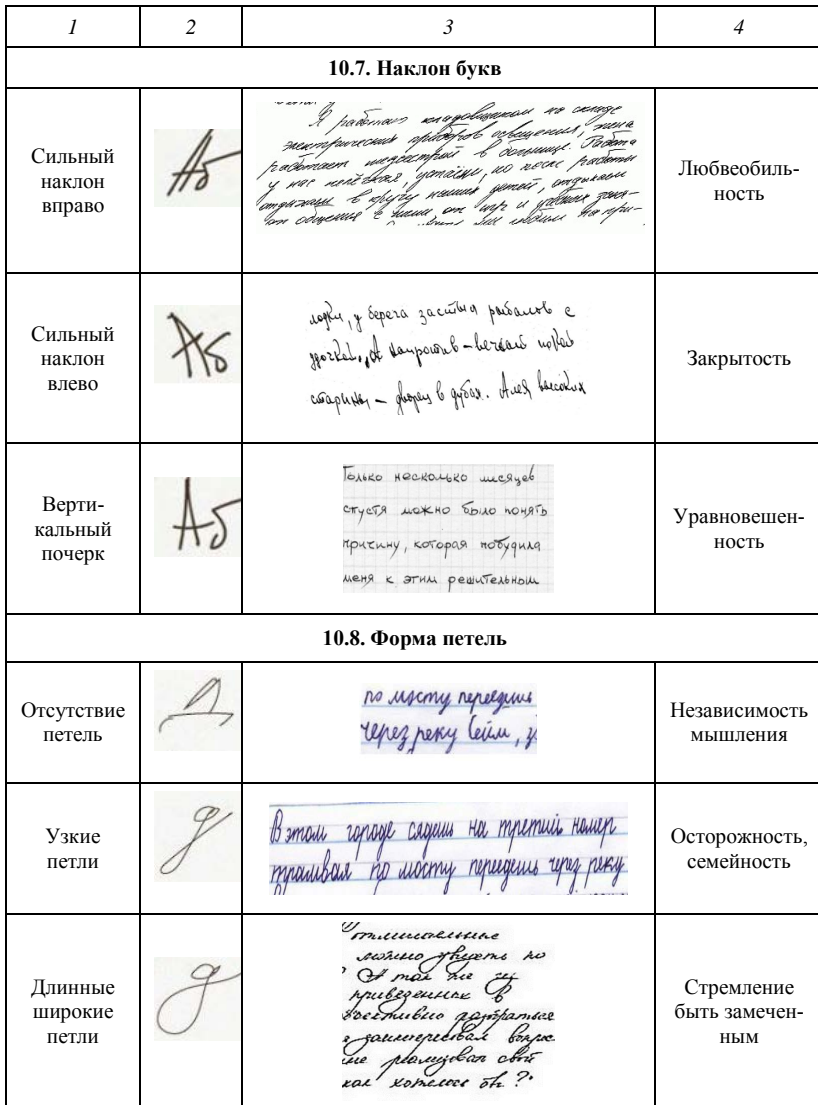 1 2 3 4
10.7. Наклон букв
Сильный
наклон
вправо
Аб
Я работаю кладовщиком на складе
электрических приборов освещения, жена
работает медсестрой в больнице. Работа
у нас нелёгкая, устаём, но после работы
отдыхаем в кругу наших детей, отдыхаем
от общения с ними, от игр и
Любвеобиль-
ность
Сильный
наклон
влево
Аб
лодки, у берега застыл рыболов с
удочкой. А напротив – вечный покой
старины – дворец в дубах. Алея высоких
Закрытость
Верти-
кальный
почерк
Аб
Только несколько месяцев
спустя можно было понять
причину, которая побудила
меня к этим решительным
Уравновешен-
ность
10.8. Форма петель
Отсутствие
петель
Д
по мосту переедешь
через реку Сейм, у
Независимость
мышления
Узкие
петли
д
В этом городе сядешь на третий номер
трамвая по мосту переедешь через реку
Осторожность,
семейность
Длинные
широкие
петли
д
отличительные
можно увидеть по
А так же из
приведенных в
объективно разобраться
заинтересовал вопрос
реализовал свой
как хотелось бы?
Стремление
быть замечен-
ным